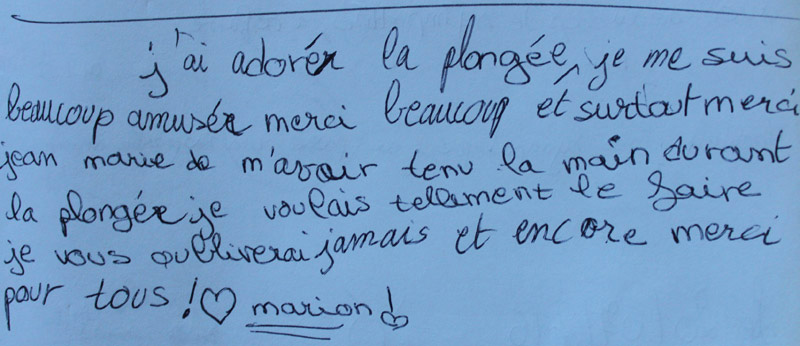 j'ai adorér la plongée, je me suis
beaucoup amusér merci beaucoup et surtout merci
jean marie de m'avoir tenu la main durant
la plongér je voulais tellement le faire
je vous oublliverai jamais et encore merci
pour tous ! ♡ marion !